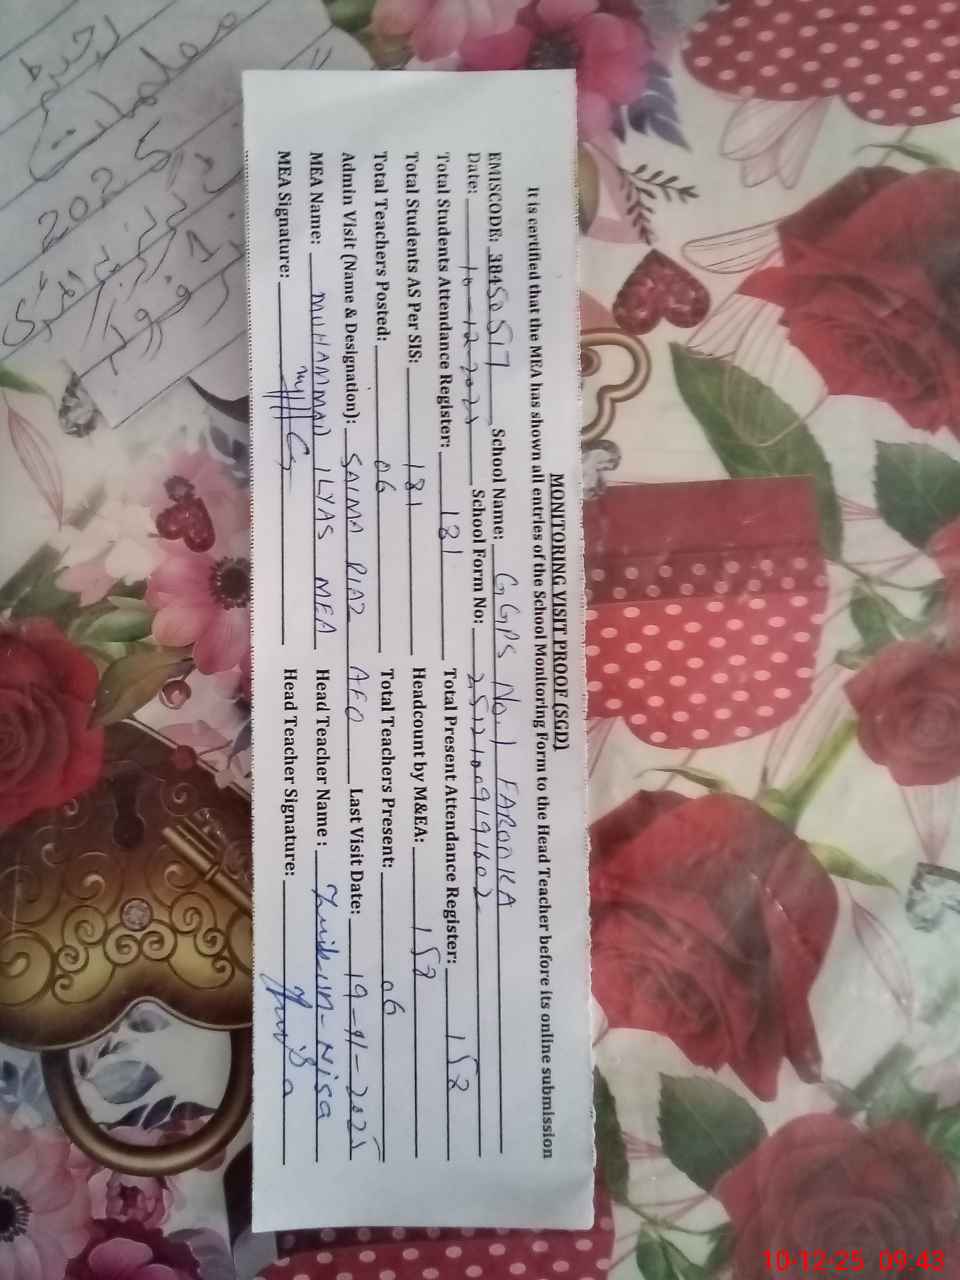 MONITORING VISIT PROOF (SGD)
It is certified that the MEA has shown all entries of the School Monitoring Form to the Head Teacher before its online submission
EMISCODE: 38450517 School Name: GGPS No.1 FAROOKA
Date: 10-12-2025 School Form No: 25121009191602
Total Students Attendance Register: 181 Total Present Attendance Register: 158
Total Students AS Per SIS: 181 Headcount by M&EA: 158
Total Teachers Posted: 06 Total Teachers Present: 06
Admin Visit (Name & Designation): SALMA RIAZ AEO Last Visit Date: 19-11-2025
MEA Name: MUHAMMAD ILYAS MEA Head Teacher Name : -un-Nisa
MEA Signature: Head Teacher Signature:
رجسٹر
معلمات
2025
10-12-25 09:43